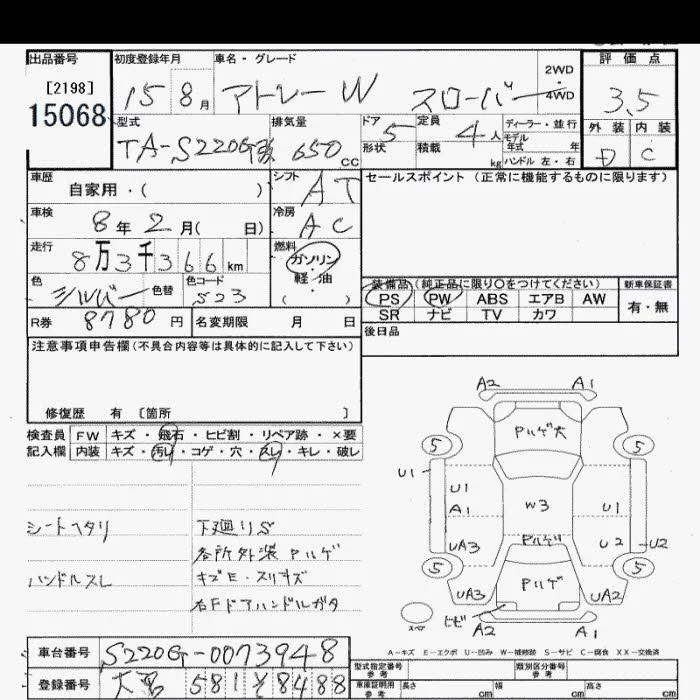 出品番号 初度登録年月 車名・グレード 評価点
[2198] 15 8月 アトレーW スローパー 2WD 4WD 3.5
15068
型式 排気量 ドア 定員 ディーラー・並行 外装 内装
TA-S220G改 650cc 5 4人 モデル年式 年 D C
形状 積載 kg ハンドル 左・右
車歴 自家用・( ) シフト AT セールスポイント(正常に機能するものに限ります)
車検 8年2月( 日) 冷房 AC
走行 8万3千366km 燃料 ガソリン・軽油 ( )
色 シルバー 色替 色コード S23
装備品(純正品に限り○をつけてください) 新車保証書
PS PW ABS エアB AW 有・無
SR ナビ TV カワ
R券 8780円 名変期限 月 日 後日品
注意事項申告欄(不具合内容等は具体的に記入して下さい)
修復歴 有 〔箇所 〕
検査員 FW キズ・飛石・ヒビ割・リペア跡・×要
記入欄 内装 キズ・汚レ・コゲ・穴・スレ・キレ・破レ
シートヘタリ 下廻りS
各所外装Pハゲ
ハンドルスレ キズE・スリキズ
右Fドアハンドルガタ
A2 A1
Pハゲ大
5 5
U1 U1 A1 W3 U1
UA3 Pハゲ U2 U2
5 5
UA3 Pハゲ UA2
スペア ヒビ A2 A1
A-キズ E-エクボ U-凹み W-補修跡 S-サビ C-腐食 XX-交換済
車台番号 S220G-0073948 型式指定番号 参考 類別区分番号 参考
登録番号 581 8488 車庫証明用 参考 長さ cm 幅 cm 高さ cm